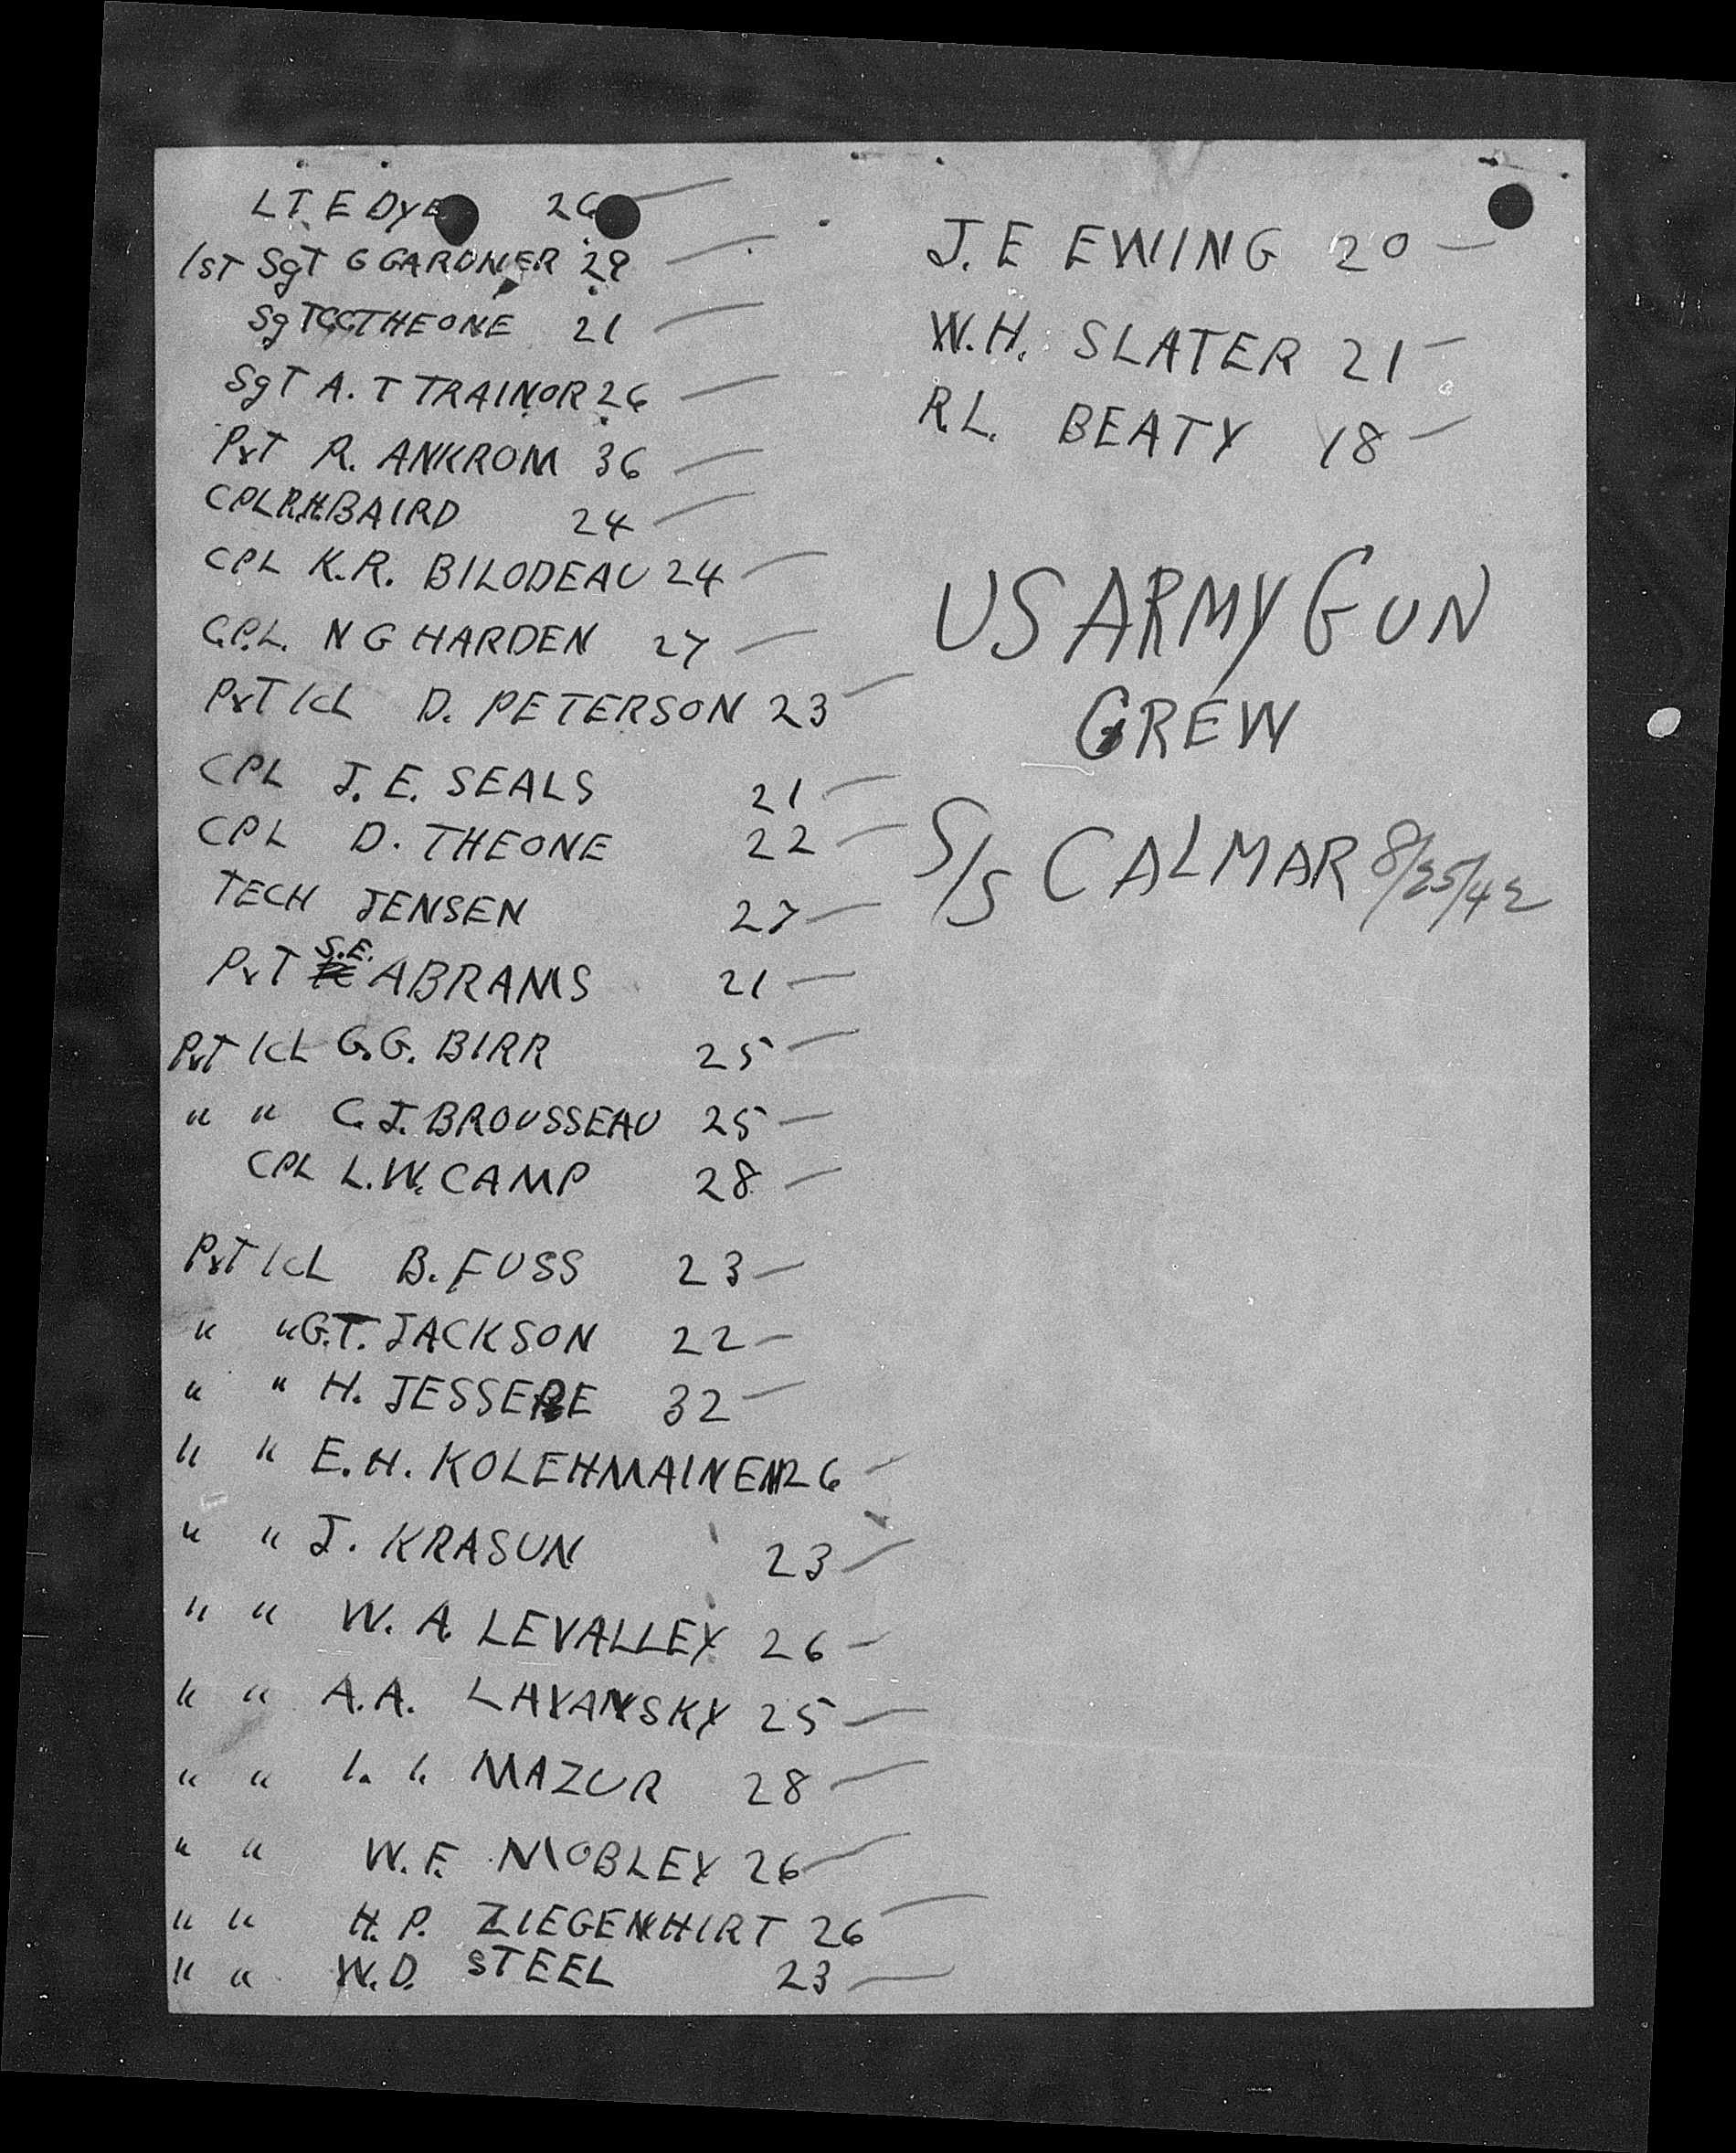 LT. E DYE 26
1ST SgT G GARDNER 29
SgT THEONE 21
SgT A. T TRAINOR 26
PvT R. ANKROM 36
CPL R.H. BAIRD 24
CPL K.R. BILODEAU 24
C.P.L. N G HARDEN 27
PvT 1cL D. PETERSON 23
CPL J. E. SEALS 21
CPL D. THEONE 22
TECH JENSEN 27
PvT S.E. ABRAMS 21
PvT 1cL G.G. BIRR 25
" " C. J. BROUSSEAU 25
CPL L.W. CAMP 28
PvT 1cL B. FUSS 23
" " G.T. JACKSON 22
" " H. 32
" " E.H. KOLEHMAINEN 26
" " J. KRASUN 23
" " W. A. LEVALLEY 26
" " A.A. LAVANSKY 25
" " I. I. MAZUR 28
" " W. F. MOBLEY 26
" " H. P. ZIEGENHIRT 26
" " W.D. STEEL 23
J. E EWING 20
W.H. SLATER 21
R.L. BEATY 18
US ARMY GUN
CREW
S/S CALMAR 8/25/42